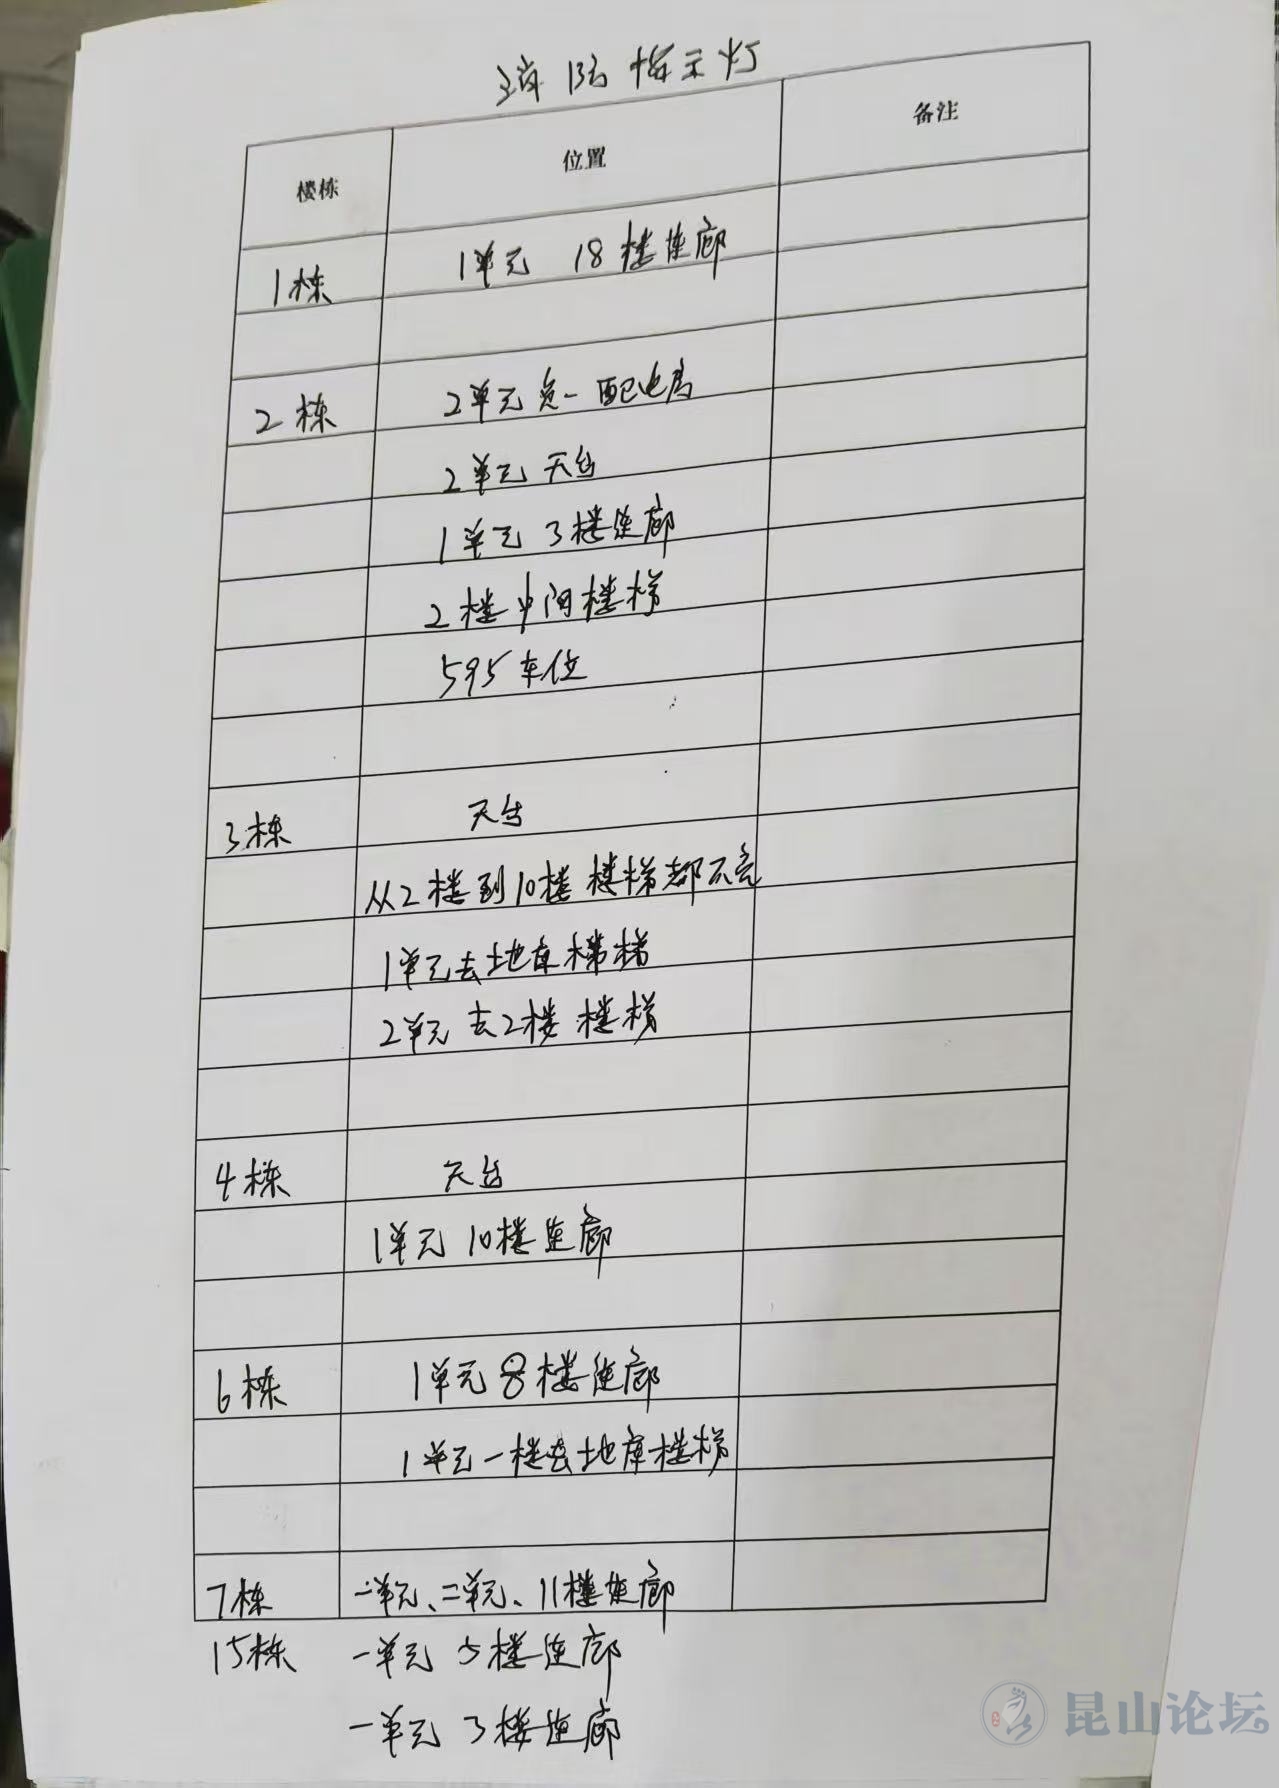 消防指示灯
楼栋 位置 备注
1栋 1单元 18楼连廊
2栋 2单元负一配电房
2单元 天台
1单元 3楼连廊
2楼中间楼梯
595车位
3栋 天台
从2楼到10楼 楼梯都不亮
1单元去地库楼梯
2单元 去2楼 楼梯
4栋 天台
1单元 10楼连廊
6栋 1单元 8楼连廊
1单元一楼去地库楼梯
7栋 一单元、二单元、11楼连廊
15栋 一单元 5楼连廊
一单元 3楼连廊
昆山论坛